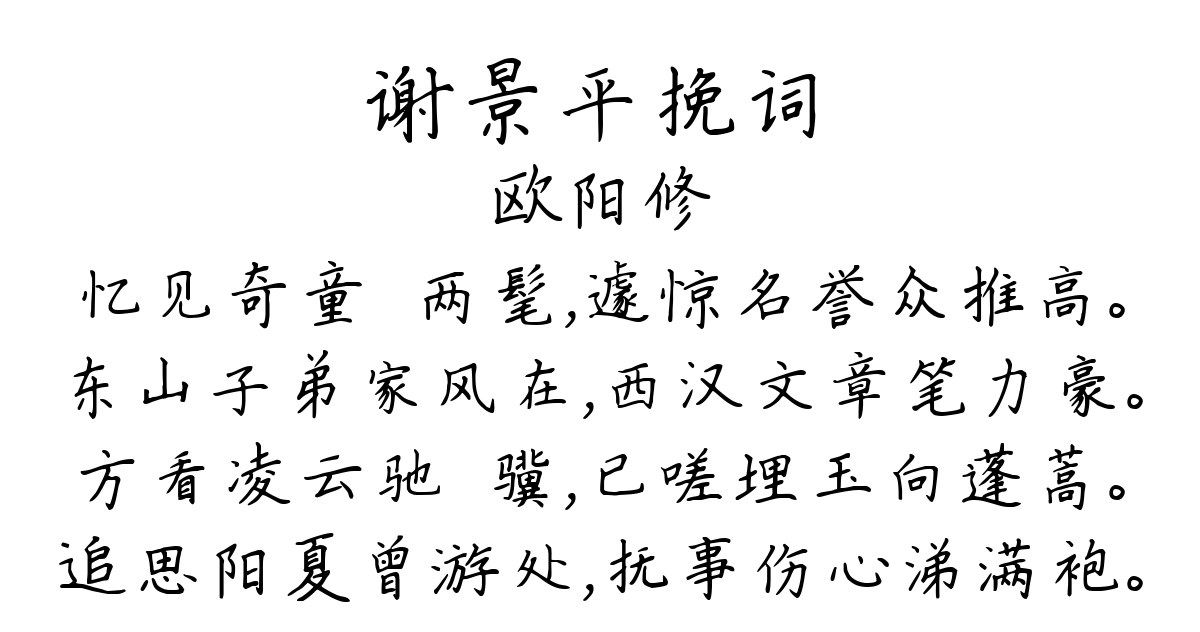 谢景平挽词
欧阳修
忆见奇童 两髦,遽惊名誉众推高。
东山子弟家风在,西汉文章笔力豪。
方看凌云驰 骥,已嗟埋玉向蓬蒿。
追思阳夏曾游处,抚事伤心涕满袍。